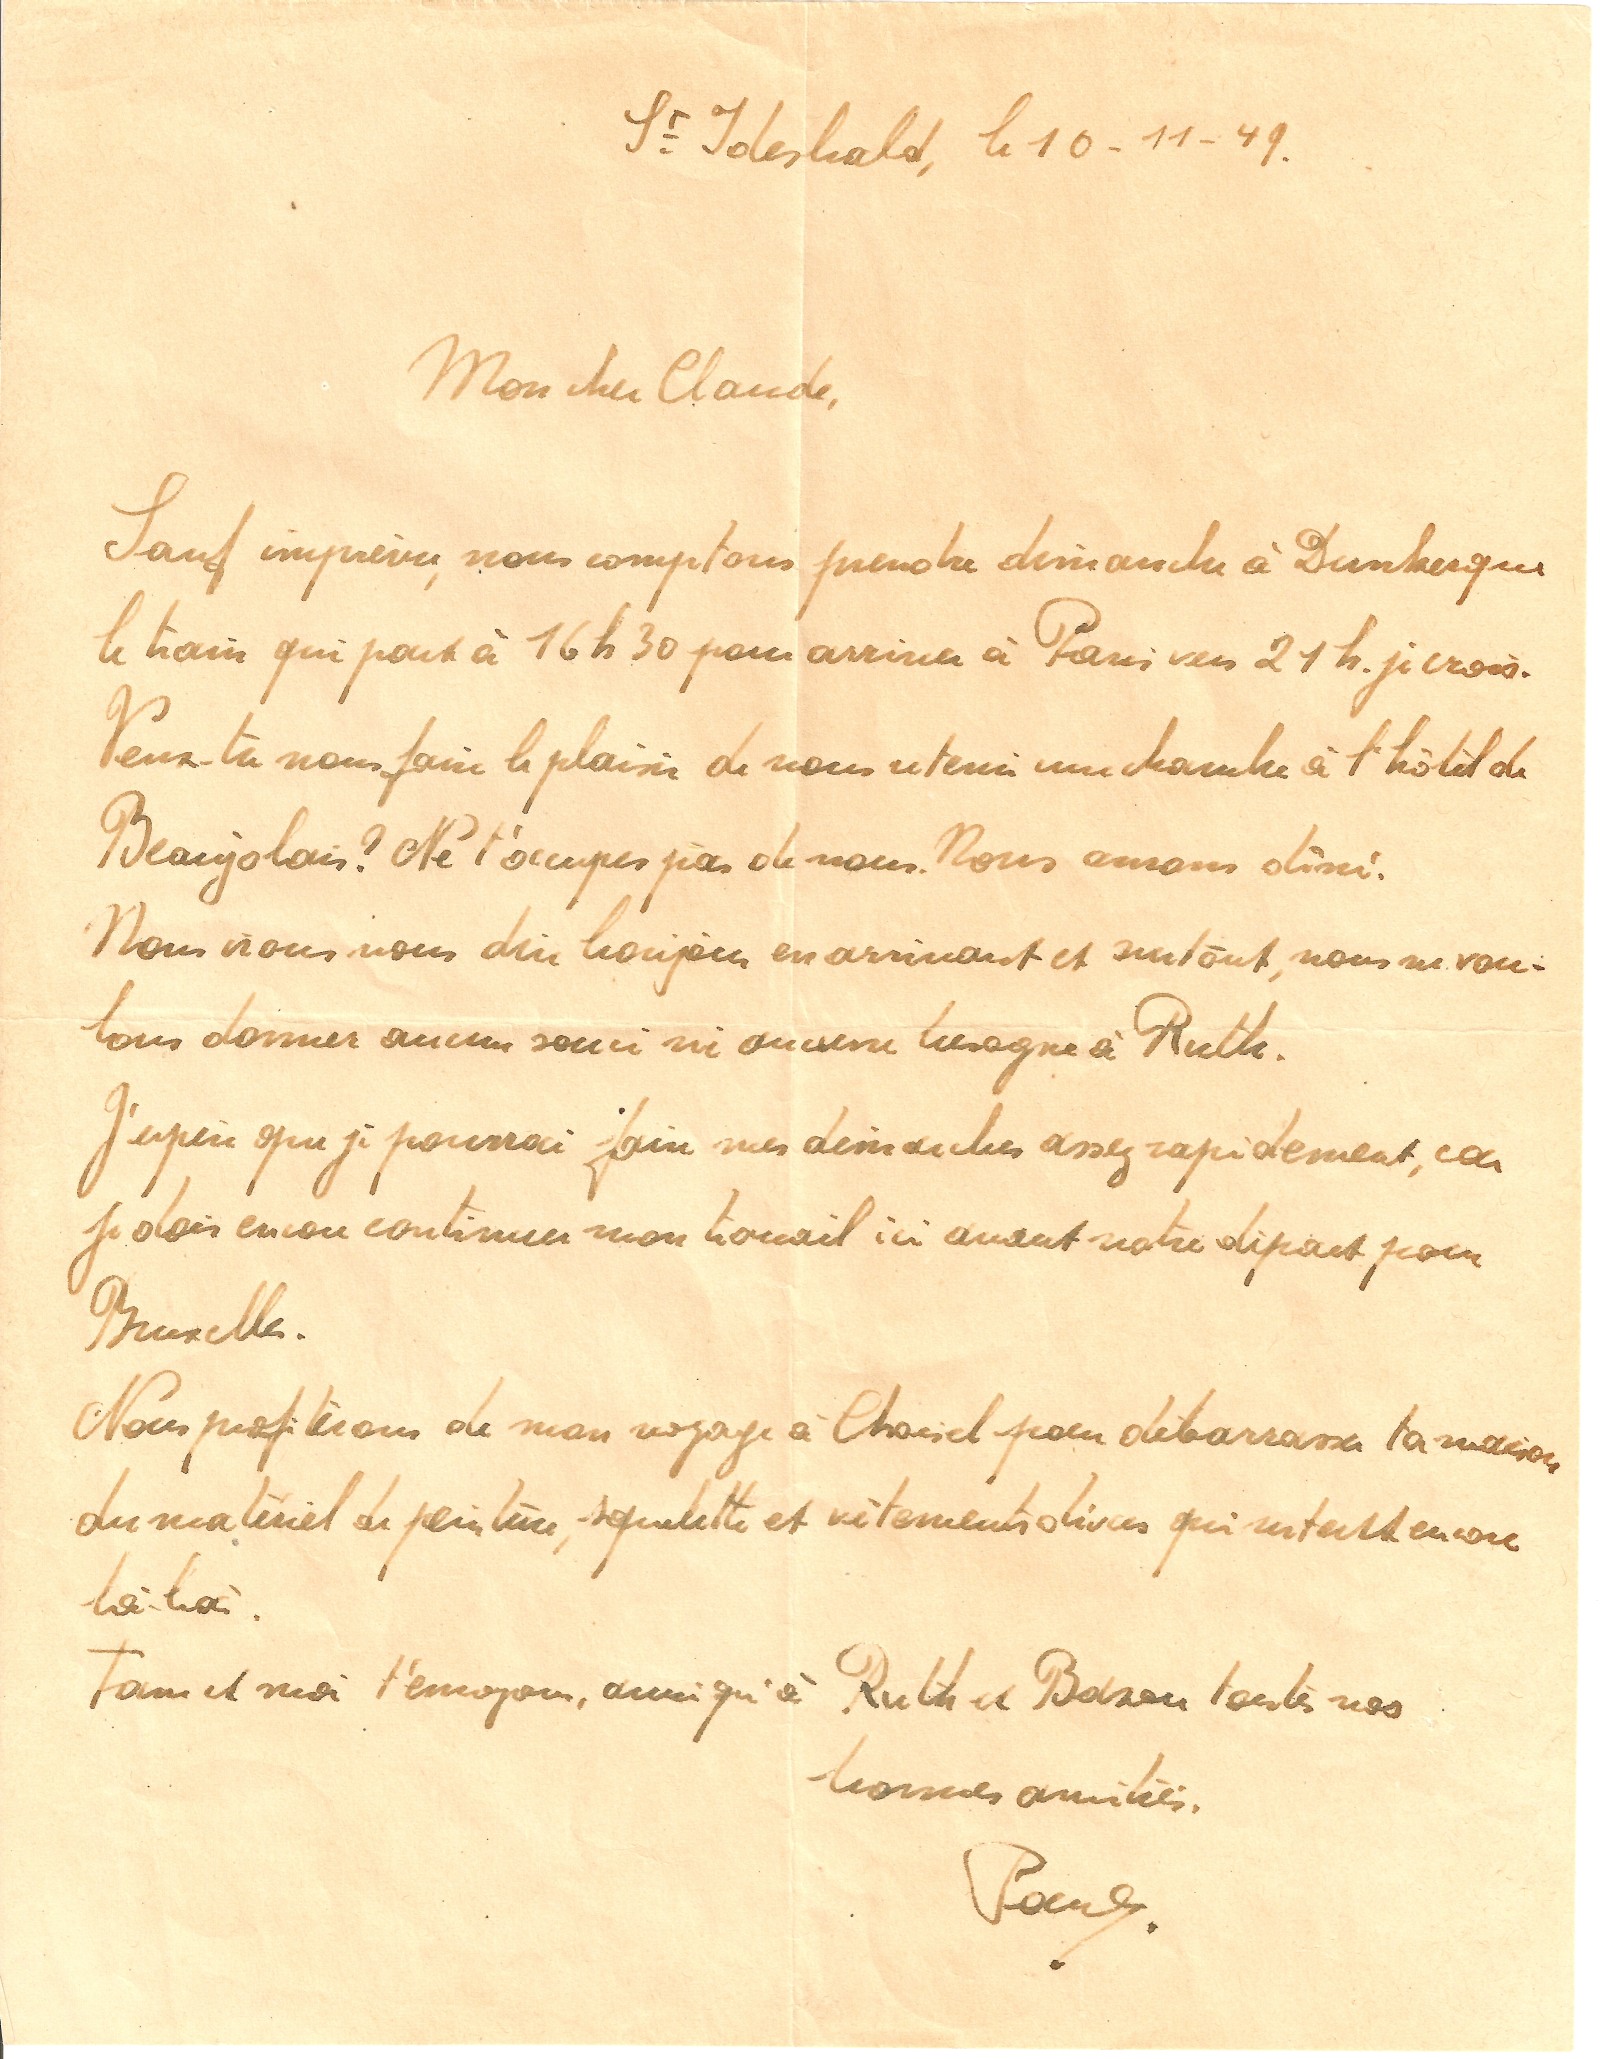 St Idesbald, le 10-11-49.
Mon cher Claude,
Sauf imprévu, nous comptons prendre dimanche à Dunkerque
le train qui part à 16h30 pour arriver à Paris vers 21 h. je crois.
Veux-tu nous faire le plaisir de nous retenir une chambre à l'hôtel de
Beaujolais? Ne t'occupes pas de nous. Nous aurons dîné.
Nous irons vous dire bonjour en arrivant et surtout, nous ne vou-
lons donner aucun souci ni aucune besogne à Ruth.
J'espère que je pourrai faire mes démarches assez rapidement, car
je dois encore continuer mon travail ici avant notre départ pour
Bruxelles.
Nous profiterons de mon voyage à Choisel pour débarrasser ta maison
du matériel de peinture, squelette et vêtements divers qui restent encore
là-bas.
Tam et moi t'envoyons, ainsi qu'à Ruth et Boxon toutes nos
bonnes amitiés.
Paul.